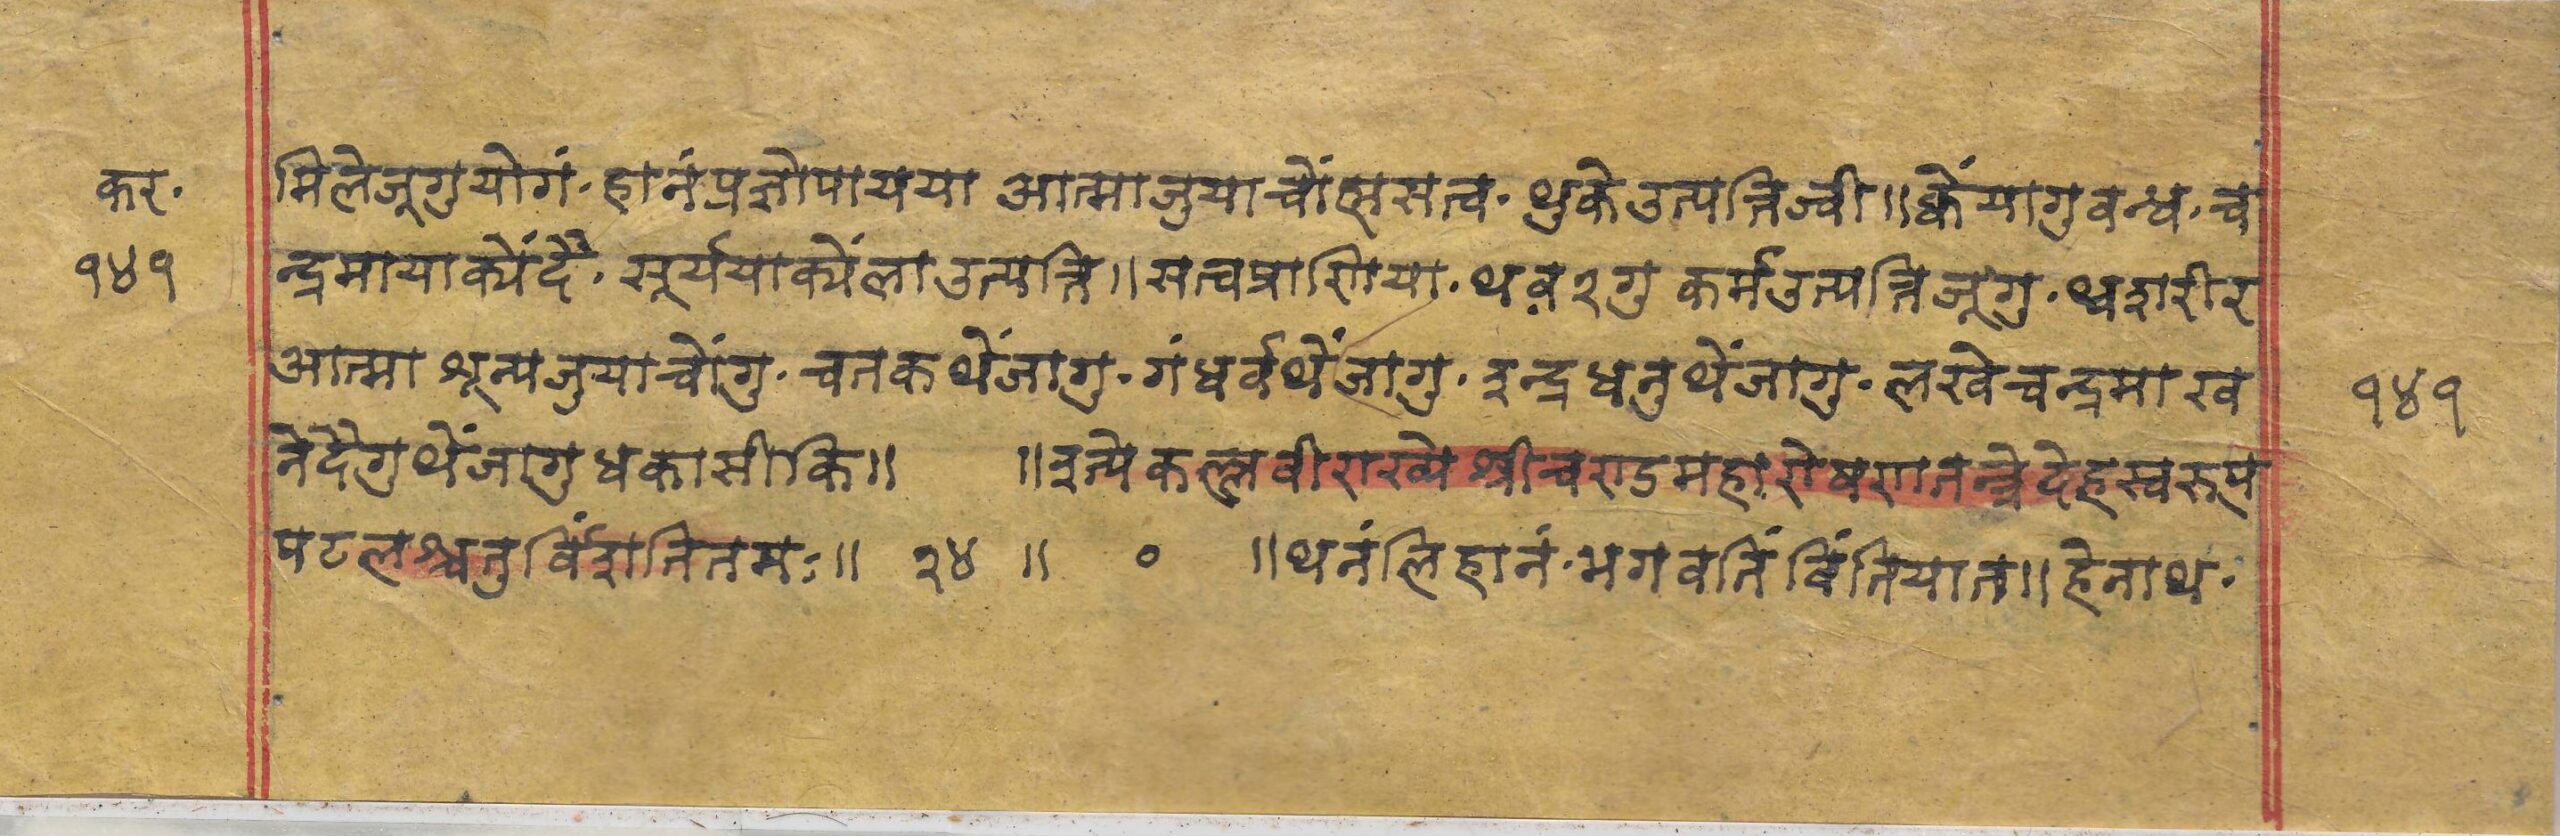 कर.
१४१
मिलेजूगुयोगं. हानंप्रज्ञोपायया आत्माजुयाचोंह्मसत्व. थुकेउत्पत्तिज्वी॥ क्वेंयागुवन्ध. च
न्द्रमायाक्येंदै. सूर्ययाक्येंलाउत्पत्ति॥ सत्वप्राणिया. थव२गु कर्मउत्पत्तिजूगु. थ्वशरीर
आत्मा शून्यजुयाचोंगु. चतकथेंजागु. गंधर्वथेंजागु. इन्द्रधनुथेंजागु. लखेचन्द्रमा ख
नेदैगुथेंजागुधकासीकि॥ ॥इत्येकल्लवीराख्ये श्रीचण्डमहारोषणतन्त्रेदेहस्वरूप
पटलश्चतुर्विंशतितमः॥ २४ ॥ ० ॥थनंलिहानं. भगवतिं विंतियात॥ हेनाथ.
१४१